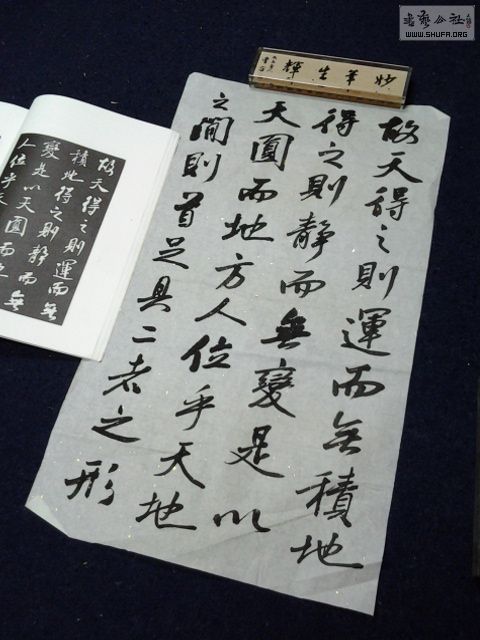 書藝公社
WWW.SHUFA.ORG
妙筆生輝
故天得之則運而無積地
得之則靜而無變是以
天圓而地方人位乎天地
之間則首足具二者之形
故天得之則運而無
積地得之則靜而無
變是以天圓而地
人位乎天